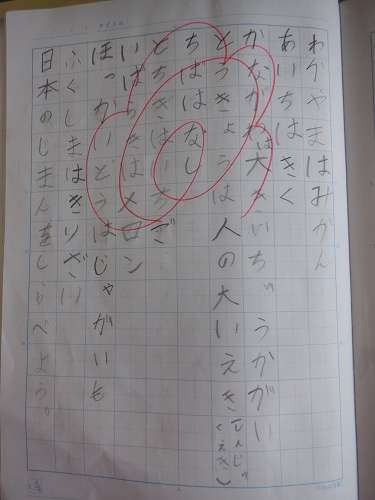 わかやまはみかん
あいちはきく
かながわは大きいちゅうかがい
とうきょうは人の大いえき(しんじゅくえき)
ちばはなし
とちぎはいちご
いばらきはメロン
ほっかいどうはじゃがいも
ふくしまはきりざい
日本のじまんをしらべよう。